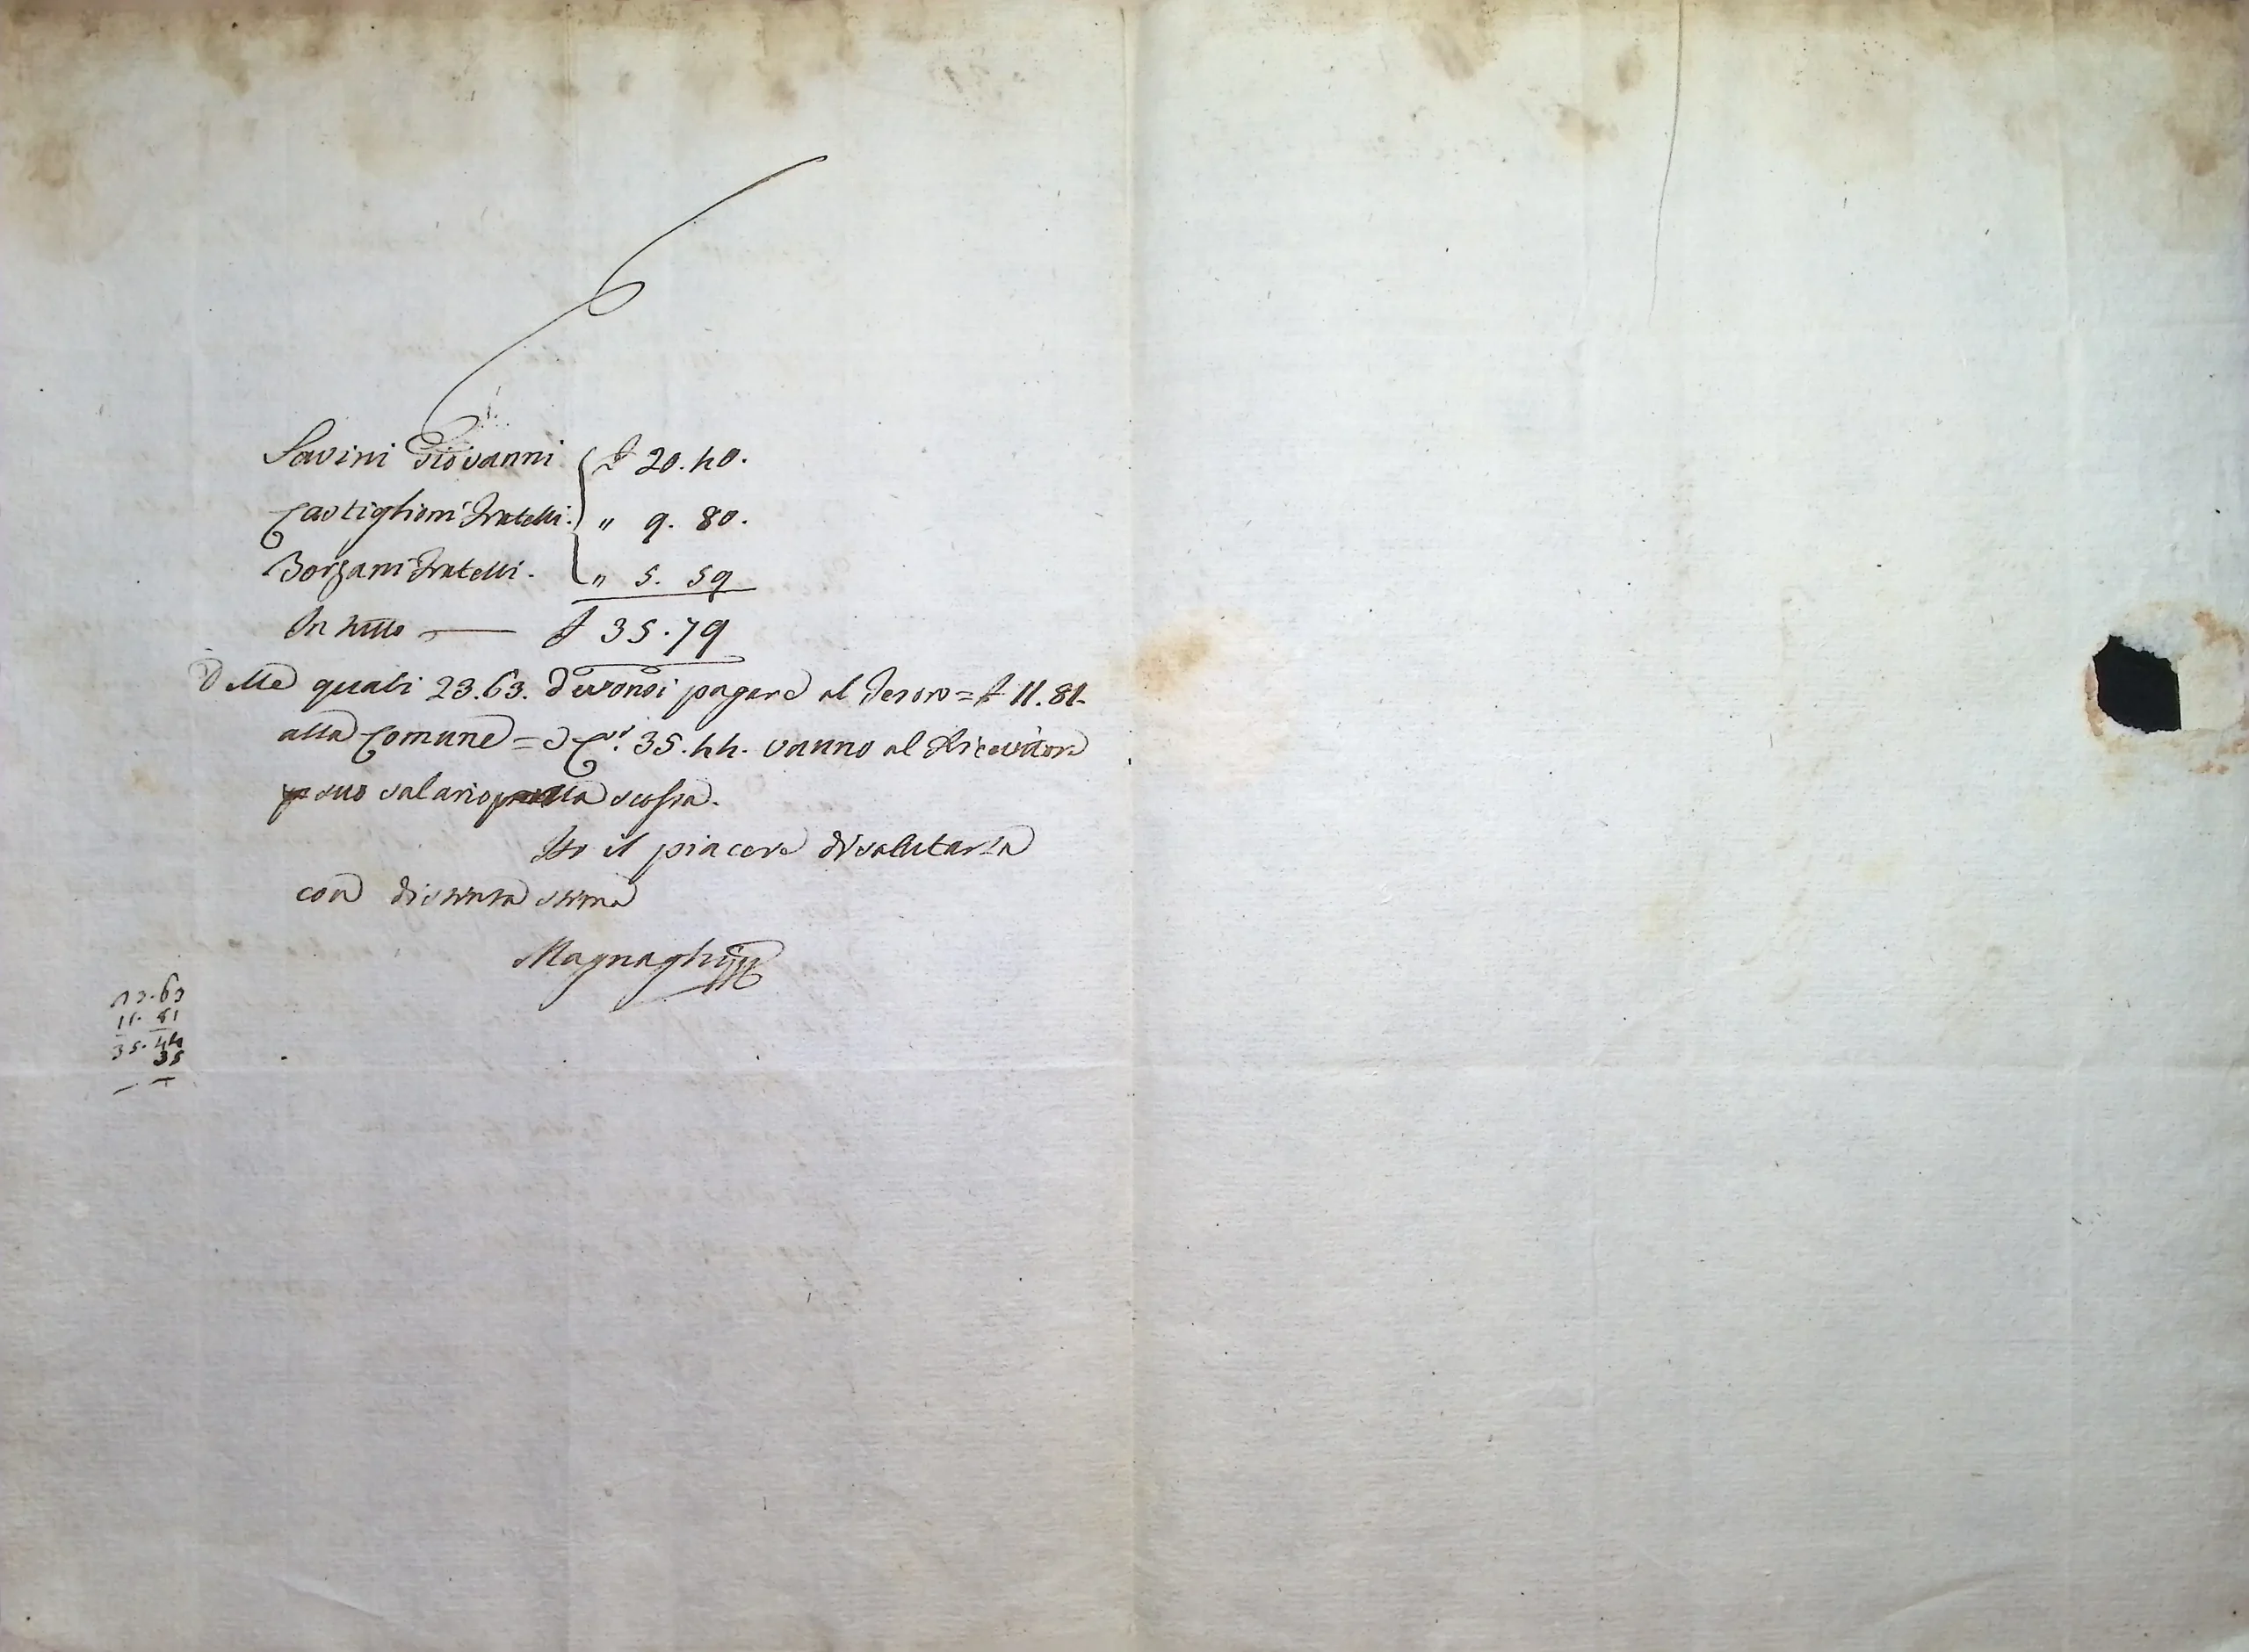 Savini Giovanni £ 20.40.
Castiglioni Fratelli. " 9. 80.
Borzani Fratelli. " 5. 59
In tutto — £ 35.79
Delle quali 23.63. devonsi pagare al Tesoro = £ 11.81.
alla Comune = e C.mi 35.44. vanno al Ricevitore
per suo salario scossa.
Ho il piacere di salutarla
con distinta stima
Magnaghi
23.63
11. 81
35. 44
35